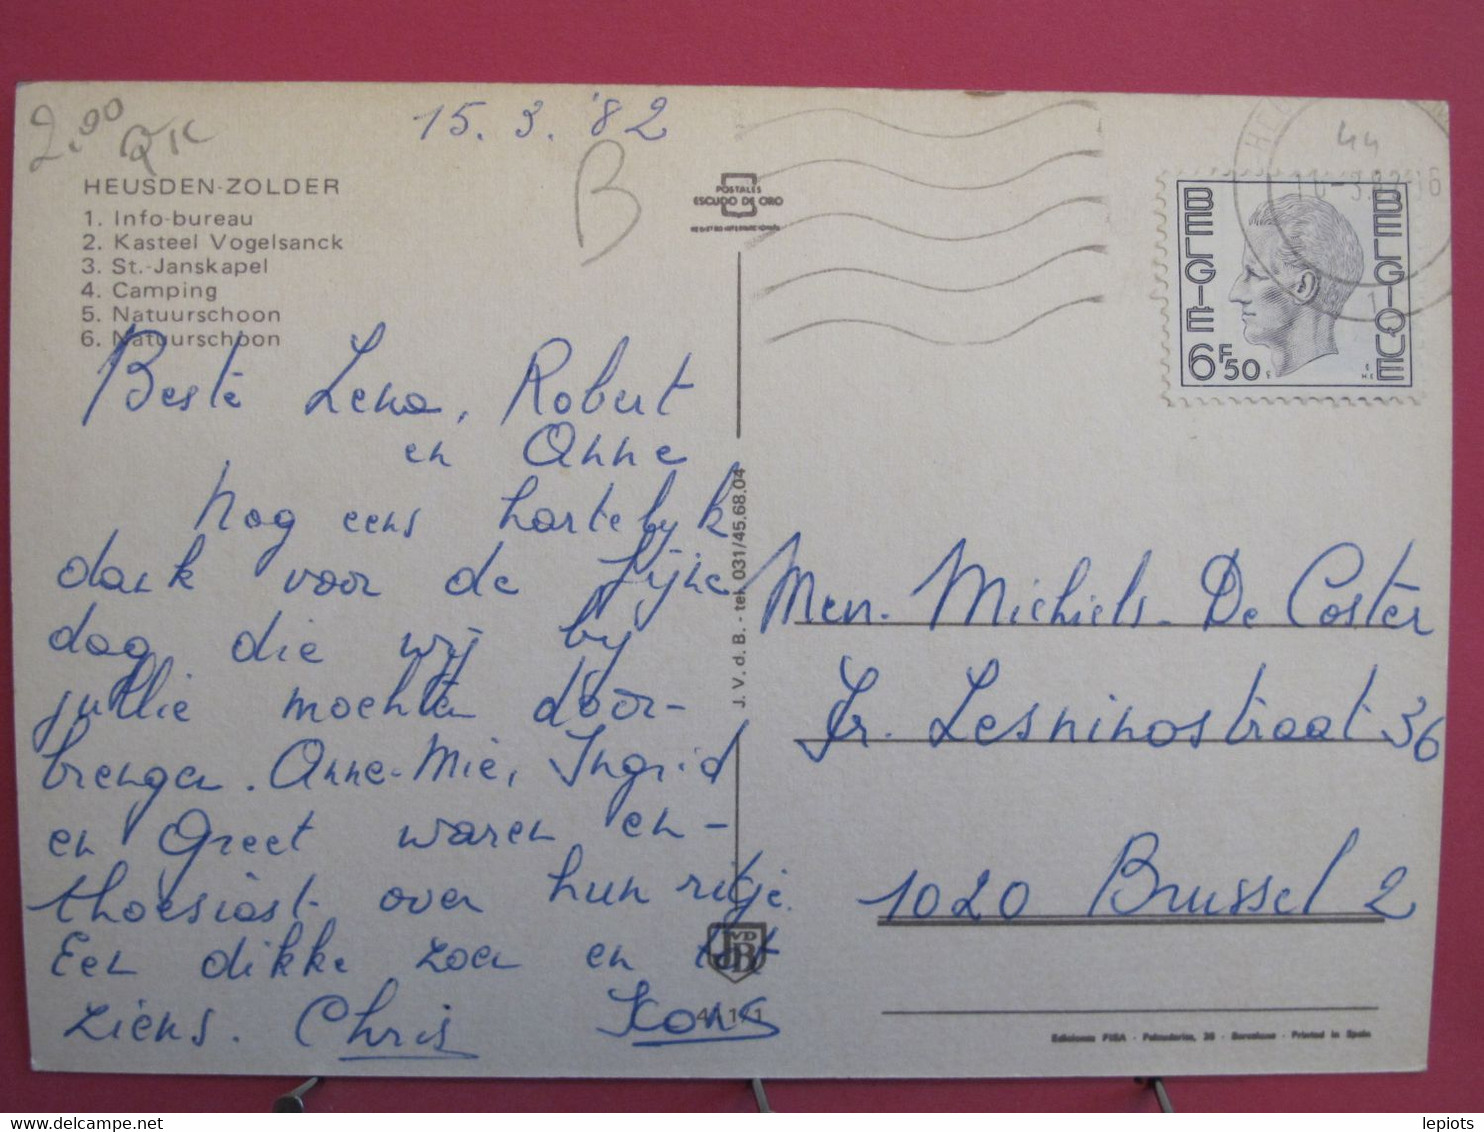 2.90
15. 3. '82
HEUSDEN-ZOLDER
1. Info-bureau
2. Kasteel Vogelsanck
3. St.-Janskapel
4. Camping
5. Natuurschoon
6. Natuurschoon
B
POSTALES
ESCUDO DE ORO
44
BELGIE
BELGIQUE
6F50
Beste Lena, Robert
en Anne
Nog eens hartelijk
dank voor de fijne
dag die wij bij
jullie mochten door-
brengen. Anne-Mie, Ingrid
en Greet waren en-
thoesiast over hun ritje.
Een dikke zoen en tot
ziens. Chris Kons
J. V. d. B. - tel. 031/45.68.04
JVDB
Men. Michiels-De Coster
Fr. Lesninostraat 36
1020 Brussel 2
Ediciones FISA - Palaudarias, 26 - Barcelona - Printed in Spain
lepiots